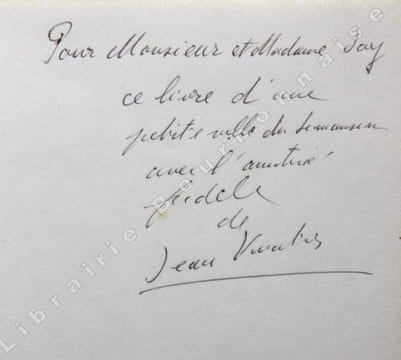 Pour Monsieur et Madame
ce livre d'une
petite ville du
avec l'amitié
fidèle
de
Jean
Librairie Bourbonnaise